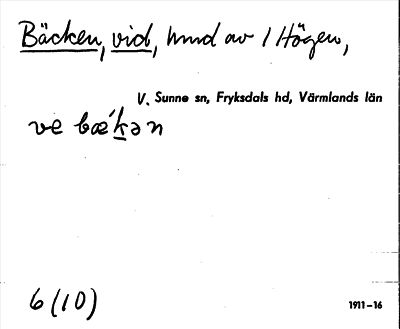 Bäcken, vid, hmd av 1 Högen,
V. Sunne sn, Fryksdals hd, Värmlands län
ve bǽkən
6 (10)
1911–16